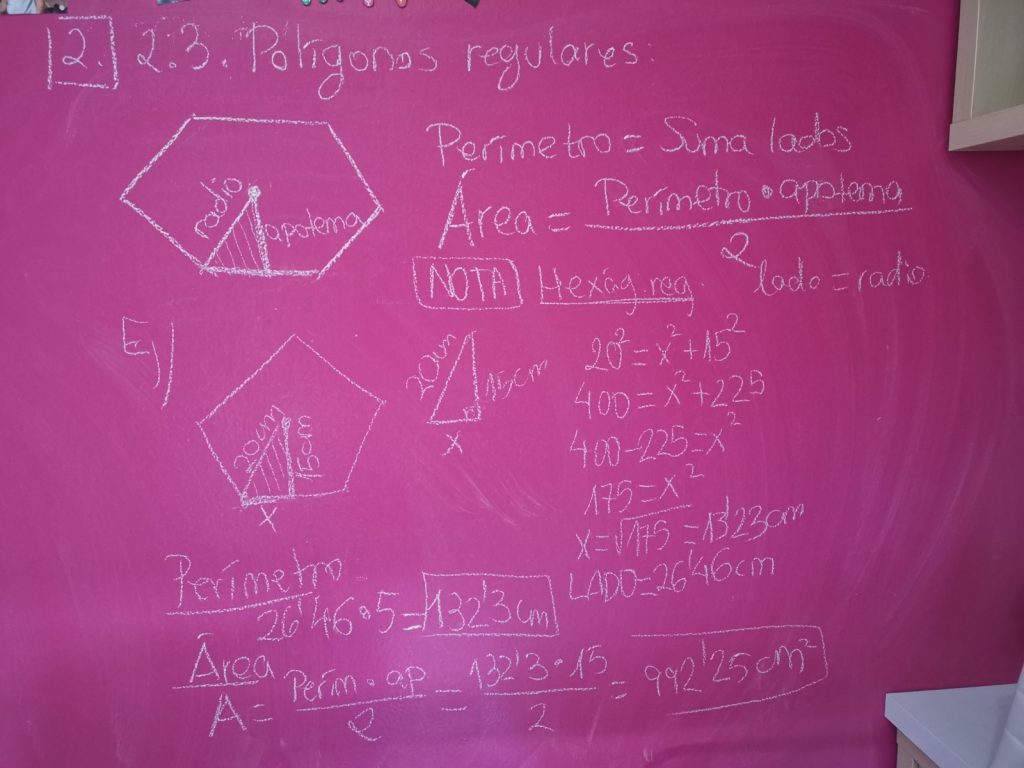 2. 2.3. Polígonos regulares:
radio
apotema
Perímetro = Suma lados
Área = Perímetro • apotema
2
NOTA Hexág. reg. lado = radio.
Ej)
20cm
15cm
x
20cm
15cm
x
20² = x² + 15²
400 = x² + 225
400 - 225 = x²
175 = x²
x = √175 = 13'23cm
LADO = 26'46cm
Perímetro
26'46 • 5 = 132'3cm
Área
A = Perím • ap / 2 = 132'3 • 15 / 2 = 992'25 cm²